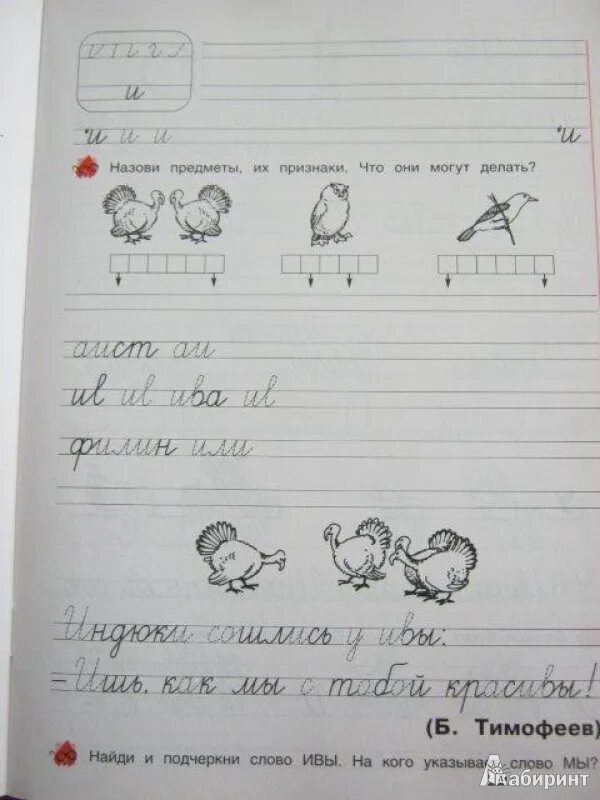 и
и и и и
Назови предметы, их признаки. Что они могут делать?
аист аи
ив ив ива ив
филин или
Индюки сошлись у ивы:
– Ишь, как мы с тобой красивы!
(Б. Тимофеев)
Найди и подчеркни слово ИВЫ. На кого указывает слово МЫ?
Лабиринт